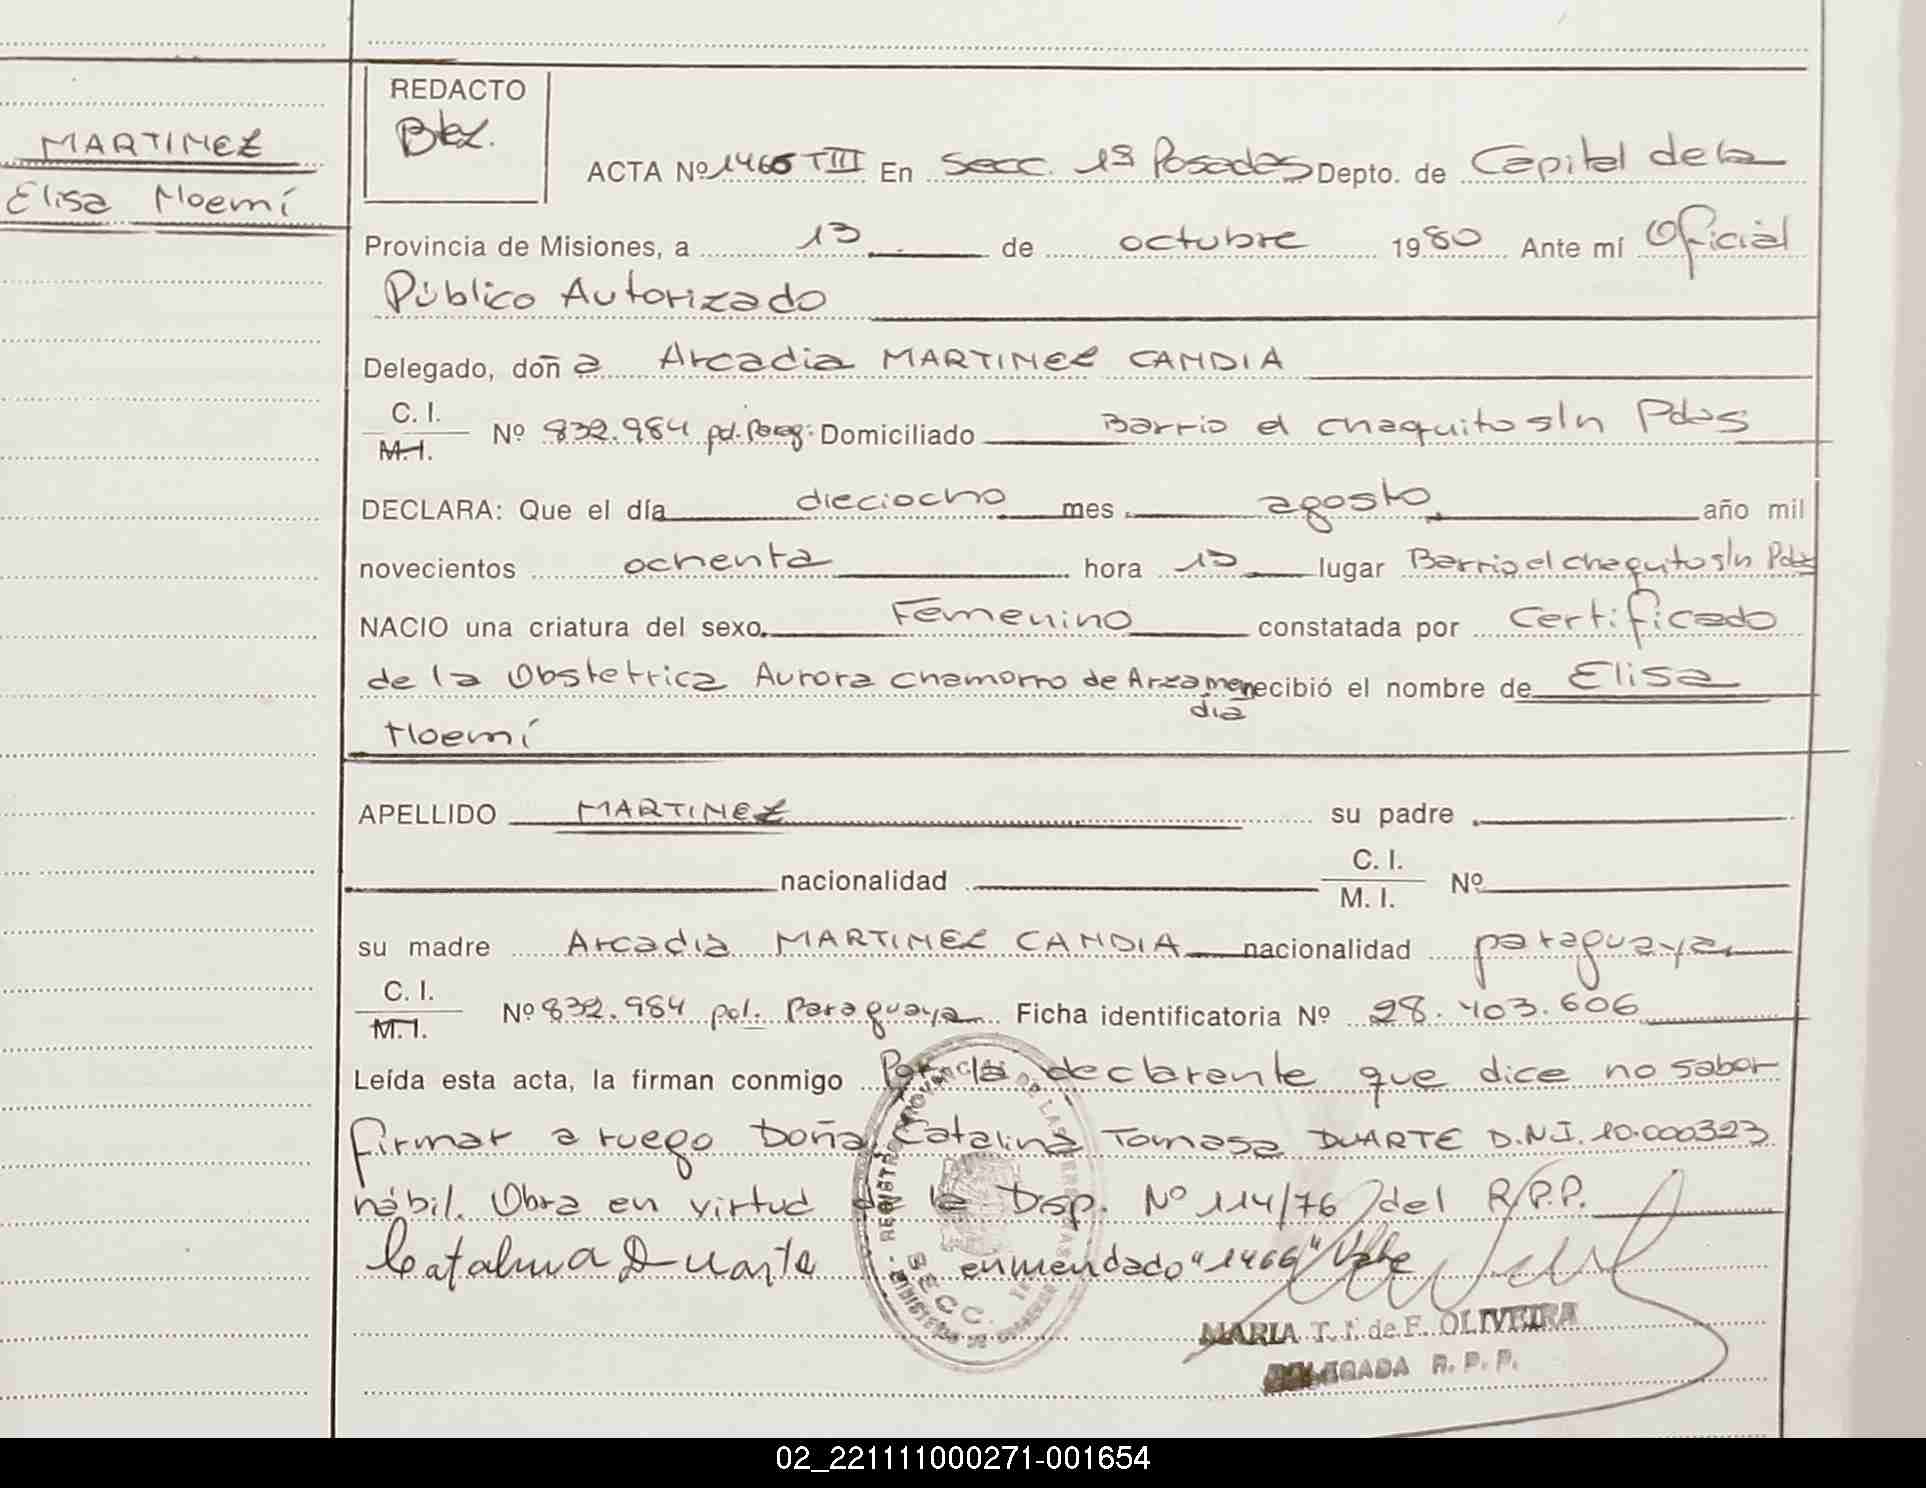 REDACTO
Bez.
MARTINEZ
Elisa Noemí
ACTA Nº 1466 TIII En Secc. 1ª Posadas Depto. de Capital de la
Provincia de Misiones, a 13 de octubre 1980 Ante mí Oficial
Público Autorizado
Delegado, doña Arcadia MARTINEZ CANDIA
C. I.
M. I. Nº 832.984 pol. Parag. Domiciliado Barrio el chaquito s/n Pdas
DECLARA: Que el día dieciocho mes agosto año mil
novecientos ochenta hora 13 lugar Barrio el chaquito s/n Pdas
NACIO una criatura del sexo Femenino constatada por Certificado
de la Obstetrica Aurora Chamorro de Arzamen recibió el nombre de Elisa
dia
Noemí
APELLIDO MARTINEZ su padre
nacionalidad C. I.
M. I. Nº
su madre Arcadia MARTINEZ CANDIA nacionalidad paraguaya
C. I.
M. I. Nº 832.984 pol. Paraguaya Ficha identificatoria Nº 28.403.606
Leída esta acta, la firman conmigo Por la declarante que dice no saber
firmar a ruego Doña Catalina Tomasa DUARTE D.N.I. 10.000323
hábil. Obra en virtud de la Disp. Nº 114/76 del R.P.P.
Catalina Duarte enmendado "1466" Vale
SECC. 1ª
MARIA T. de F. OLIVEIRA
DELEGADA R. P. P.
02_221111000271-001654